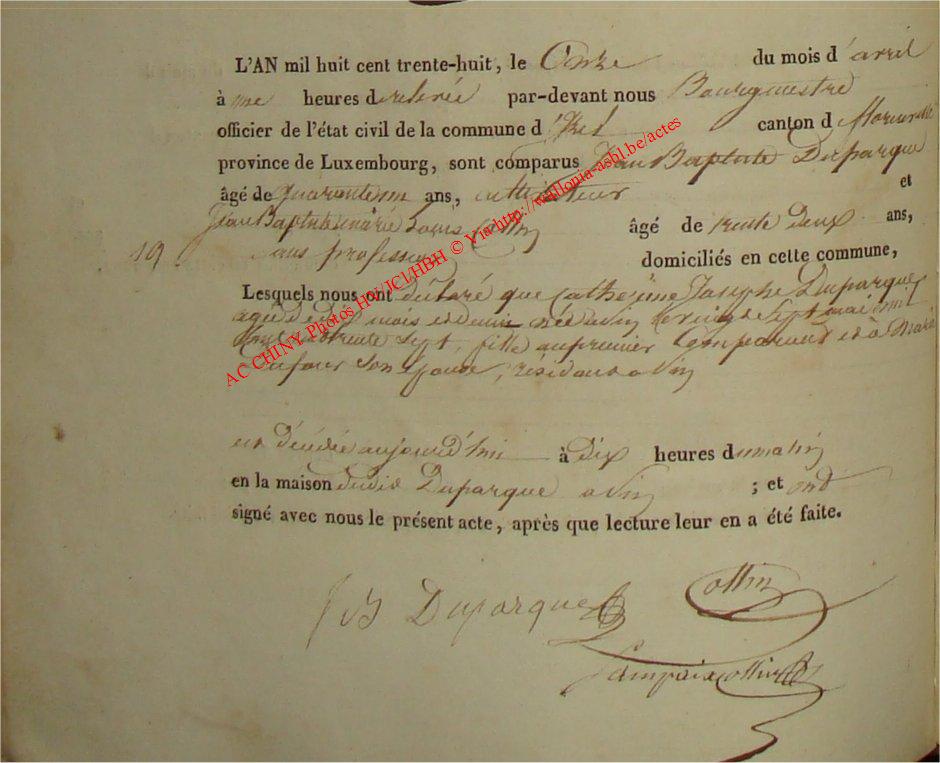 L'AN mil huit cent trente-huit, le Onze du mois d'avril
à une heures de relevée par-devant nous Bourgmestre
officier de l'état civil de la commune d'Izel canton de Florenville
province de Luxembourg, sont comparus Jean Baptiste Duparque
âgé de quarante un ans, cultivateur et
Jean Baptiste marie Louis Collin âgé de trente deux ans,
19. sans profession domiciliés en cette commune,
Lesquels nous ont déclaré que Catherine Josephe Duparque
agée de six mois et demi née a Pin le vingt Sept mil
huit cent trente Sept, fille au premier Comparant et à Marie
son épouse, résidant a Pin
est décédée aujourd'hui à dix heures du matin
en la maison dudit Duparque a Pin ; et ont
signé avec nous le présent acte, après que lecture leur en a été faite.
JB Duparque Collin
AC CHINY Photos HCl/JCl/HBH © Via http://wallonia-asbl.be/actes